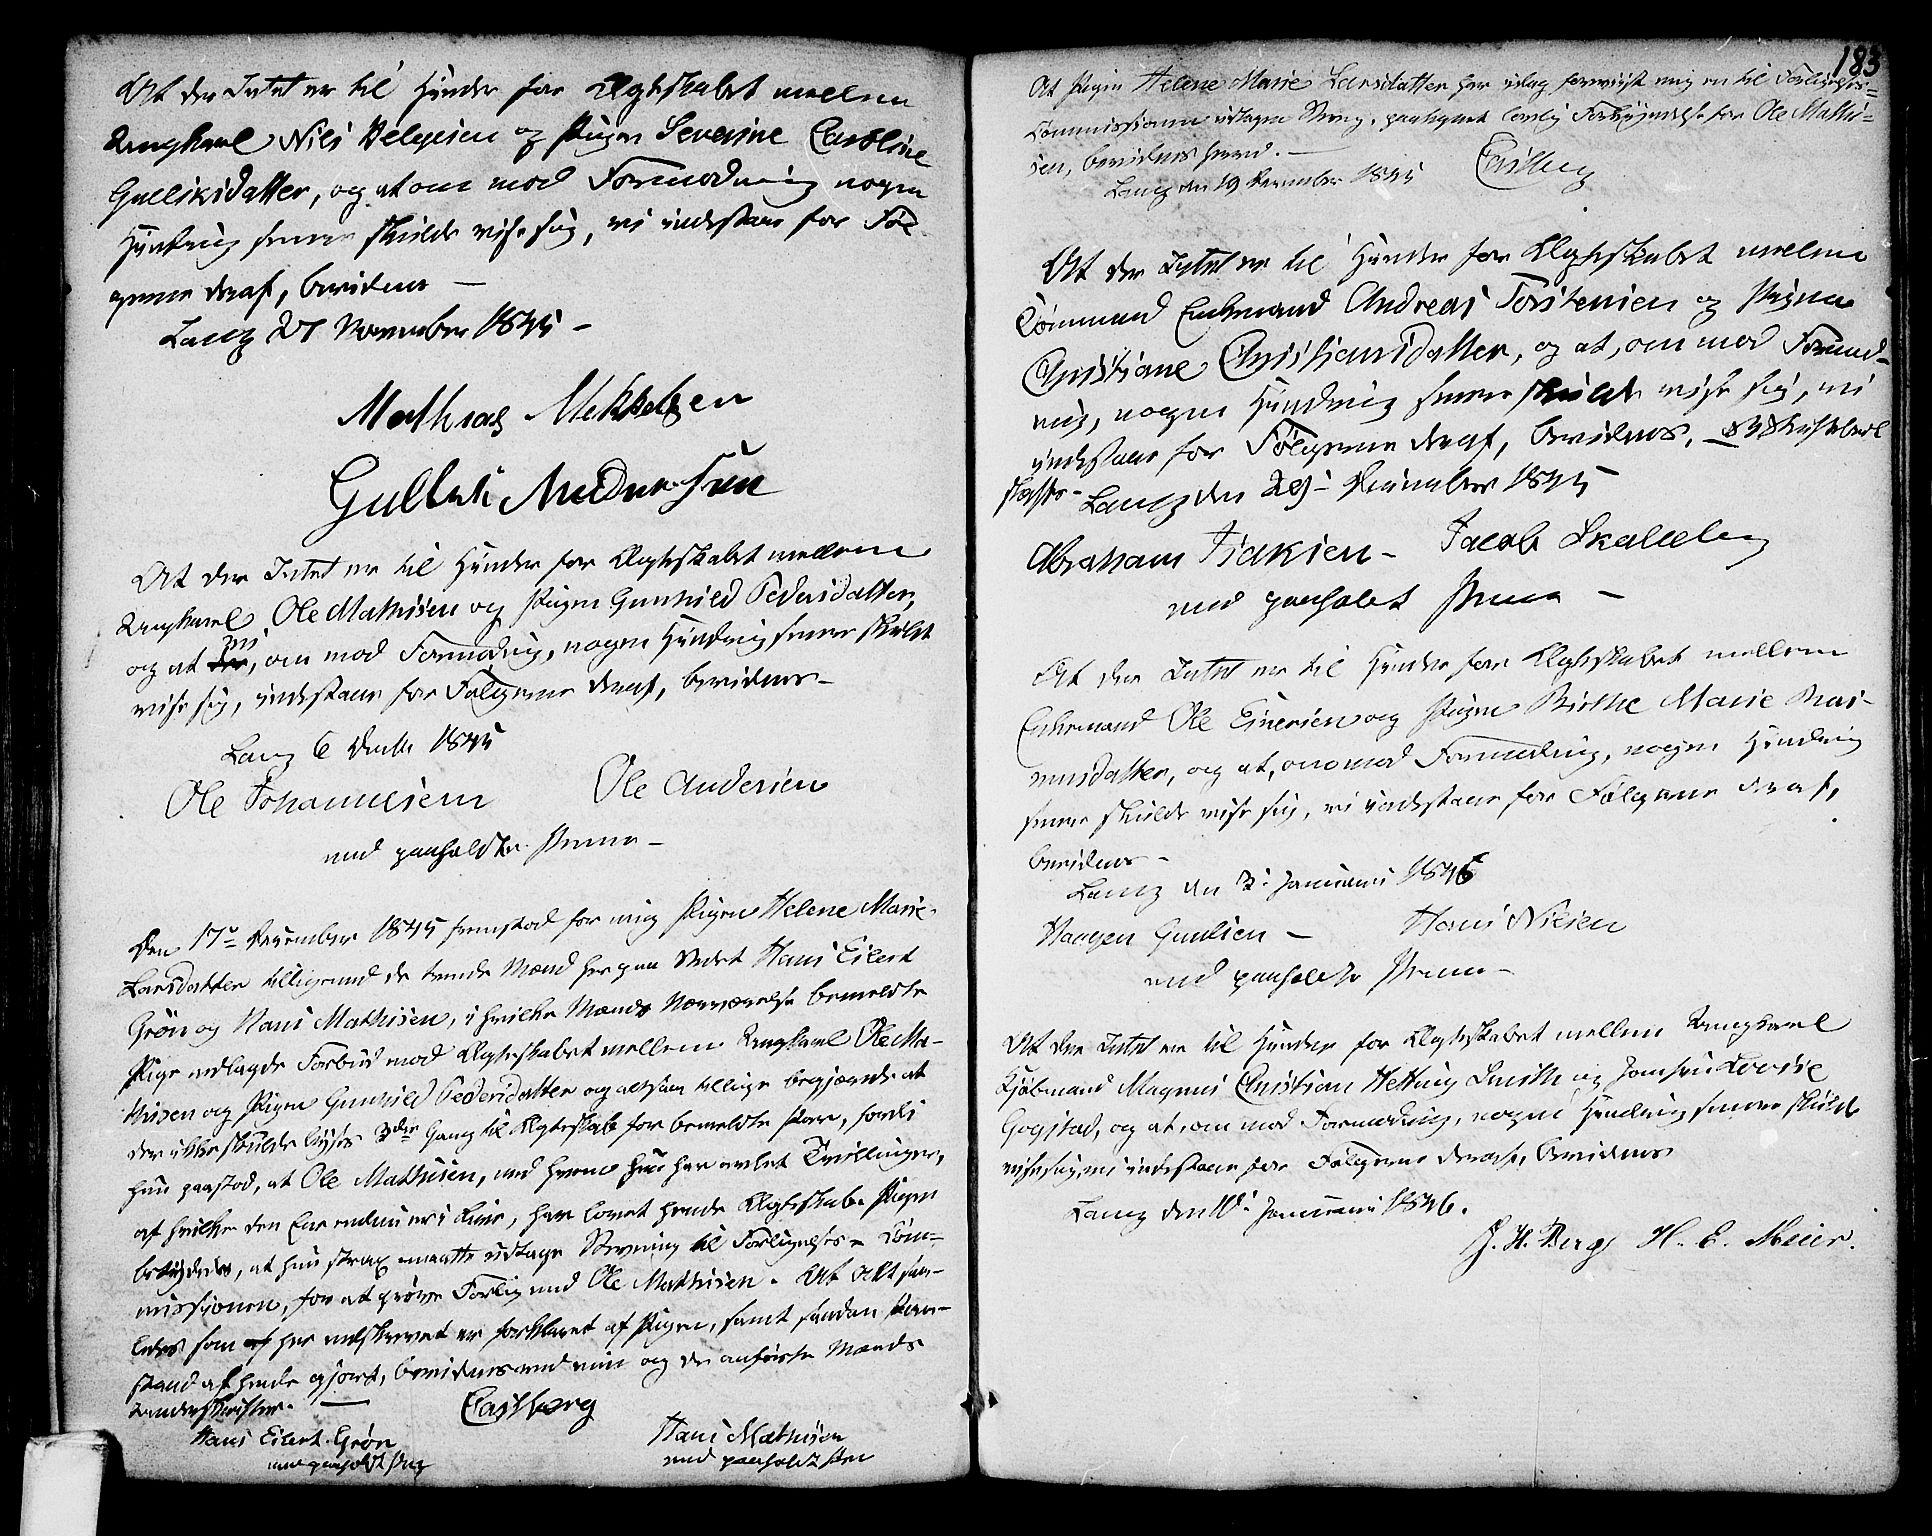 At der Intet er til Hinder for Ægteskabet mellem
Ungkarl Nils Helgesen og Pigen Severine Caroline
Gulliksdatter, og at om mod Formodning nogen
Hindring senere skulde vise sig, vi indestaae for Føl-
gerne deraf, bevidnes
Laug 27 November 1845 -
Mathias Mekkelsen
Gullek Andersen
At der Intet er til Hinder for Ægteskabet mellem
Ungkarl Ole Mathisen og Pigen Gunhild Pedersdatter,
og at vi, om mod Formodning, nogen Hindring senere skulde
vise sig, indestaae for Følgerne deraf, bevidnes -
Laug 6 Decbr 1845
Ole Johannesen Ole Andersen
med paaholdte Penne -
Den 17de December 1845 fremstod for mig Pigen Helene Marie
Larsdatter tilligemed de tvende Mænd her paa Stedet Hans Eilert
Grøn og Hans Mathisen, i hvilke Mænds Nærværelse bemeldte
Pige nedlagde Forbud mod Ægteskabet mellem Ungkarl Ole Ma-
thisen og Pigen Gunhild Pedersdatter og altsaa tillige begjærede at
der ikke skulde lyses 3die Gang til Ægteskab for bemeldte Par, fordi
hun paastod, at Ole Mathisen, med hvem hun har avlet Tvillinger,
af hvilke den Ene endnu er i Live, har lovet hende Ægteskab. Pigen
betydedes, at hun strax maatte udtage Stevning til Forligelses- Com-
missionen, for at prøve Forlig med Ole Mathisen. At Alt saa-
ledes som her nedskrevet er forklaret af Pigen, samt saadan Paa-
stand af hende gjort, bevidnes med min og de anførte Mænds
Underskrifter. -
Castberg
Hans Eilert Grøn Hans Mathisen
med paaholdt Pen med paaholdt Pen
183
At Pigen Helene Marie Larsdatter har idag foreviist mig en til Forligelses-
Commissionen udtagen Stevning, paategnet lovlig Forkyndelse for Ole Mathi-
sen, bevidnes herved. -
Laug den 19 December 1845 Castberg
At der Intet er til Hinder for Ægteskabet mellem
Tømmermand Enkemand Andreas Torstensen og Pigen
Christiane Christiansdatter, og at, om mod Formod-
ning, nogen Hindring senere skulde vise sig, vi
indestaae for Følgerne deraf, bevidnes.
Laug den 29de December 1845
Abraham Isaksen - Jacob Skalleberg
med paaholdt Penne -
At der Intet er til Hinder for Ægteskabet mellem
Enkemand Ole Einersen og Pigen Birthe Marie Ras-
musdatter, og at, om mod Formodning, nogen Hindring
senere skulde vise sig, vi indestaae for Følgerne deraf,
bevidnes -
Laug den 3. Januari 1846
Haagen Gunlsen - Hans Nilsen
med paaholdte Penne -
At der Intet er til Hinder for Ægteskabet mellem Ungkarl
Kjøbmand Magnus Christian Hetting Smith og Jomfru Lovise
Gogstad, og at, om mod Formodning, nogen Hindring senere skulde
vise sig, vi indestaae for Følgerne deraf, bevidnes
Laug den 10. Januari 1846.
J. H. Berg H. E. Meier.